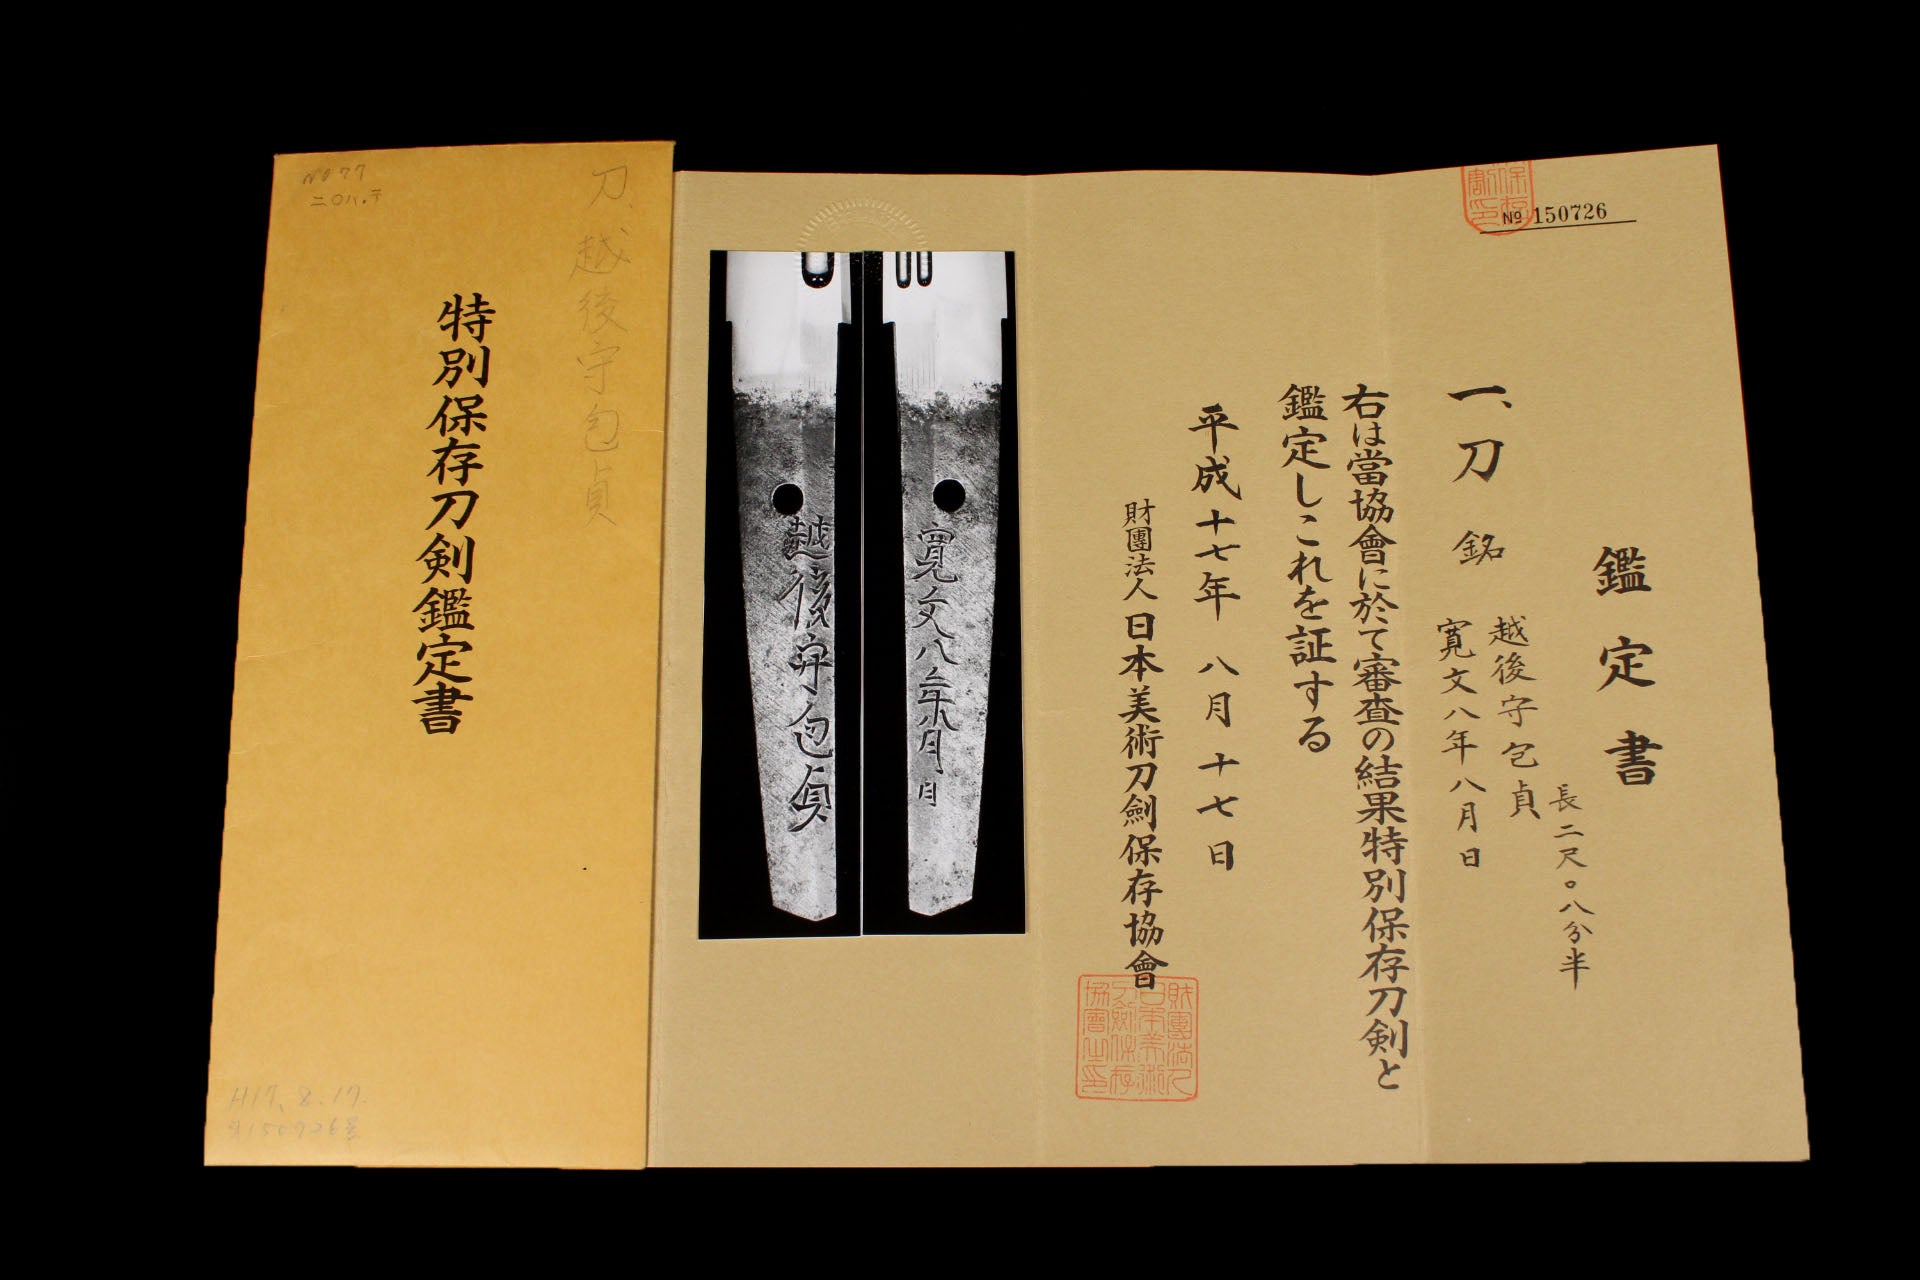 特別保存刀剣鑑定書
刀、越後守包貞
No 77
二〇八.半
H17. 8. 17.
第150726号
№ 150726
鑑定書
長二尺〇八分半
一、刀 銘 越後守包貞
寛文八年八月日
右は當協會に於て審査の結果特別保存刀剣と
鑑定しこれを証する
平成十七年 八月十七日
財團法人 日本美術刀劍保存協會
財團法人
日本美術
刀劍保存
協會之印
越後守包貞
寛文八年八月日